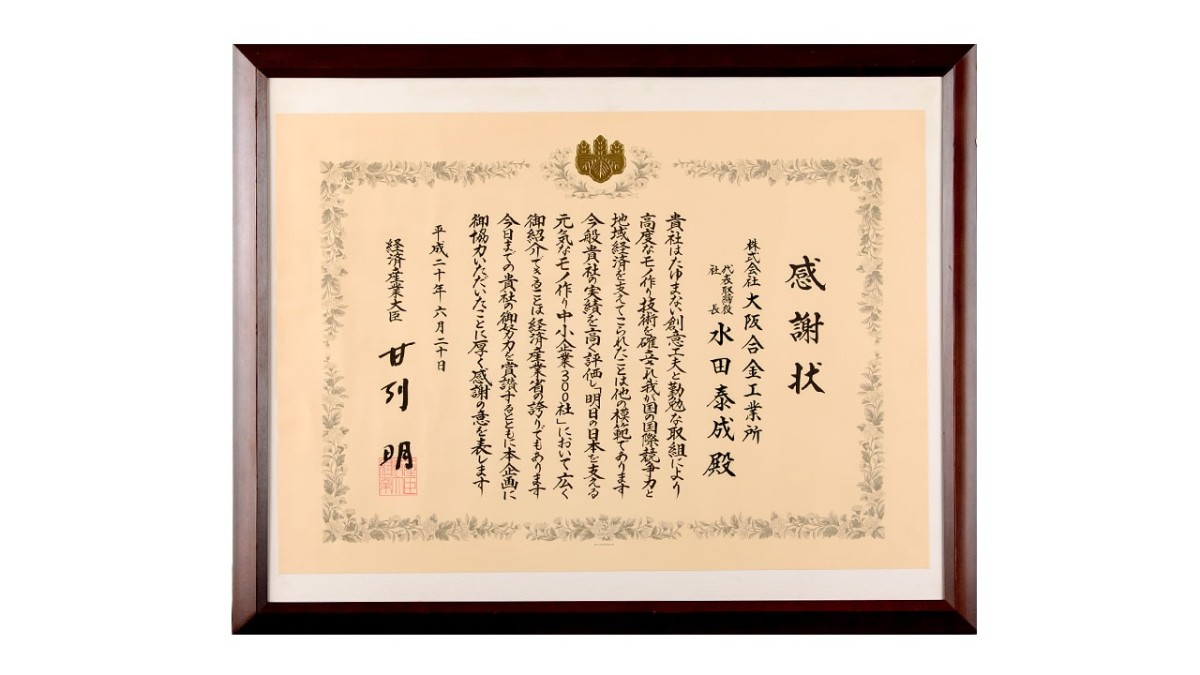 感謝状
株式会社 大阪合金工業所
代表取締役
社長
水田泰成殿
貴社はたゆまない創意工夫と勤勉な取組により
高度なモノ作り技術を確立され我が国の国際競争力と
地域経済を支えてこられたことは他の模範であります
今般貴社の実績を高く評価し「明日の日本を支える
元気なモノ作り中小企業300社」において広く
御紹介できることは経済産業省の誇りでもあります
今日までの貴社の御努力を賞讃するとともに本企画に
御協力いただいたことに厚く感謝の意を表します
平成二十年六月二十日
経済産業大臣 甘利 明